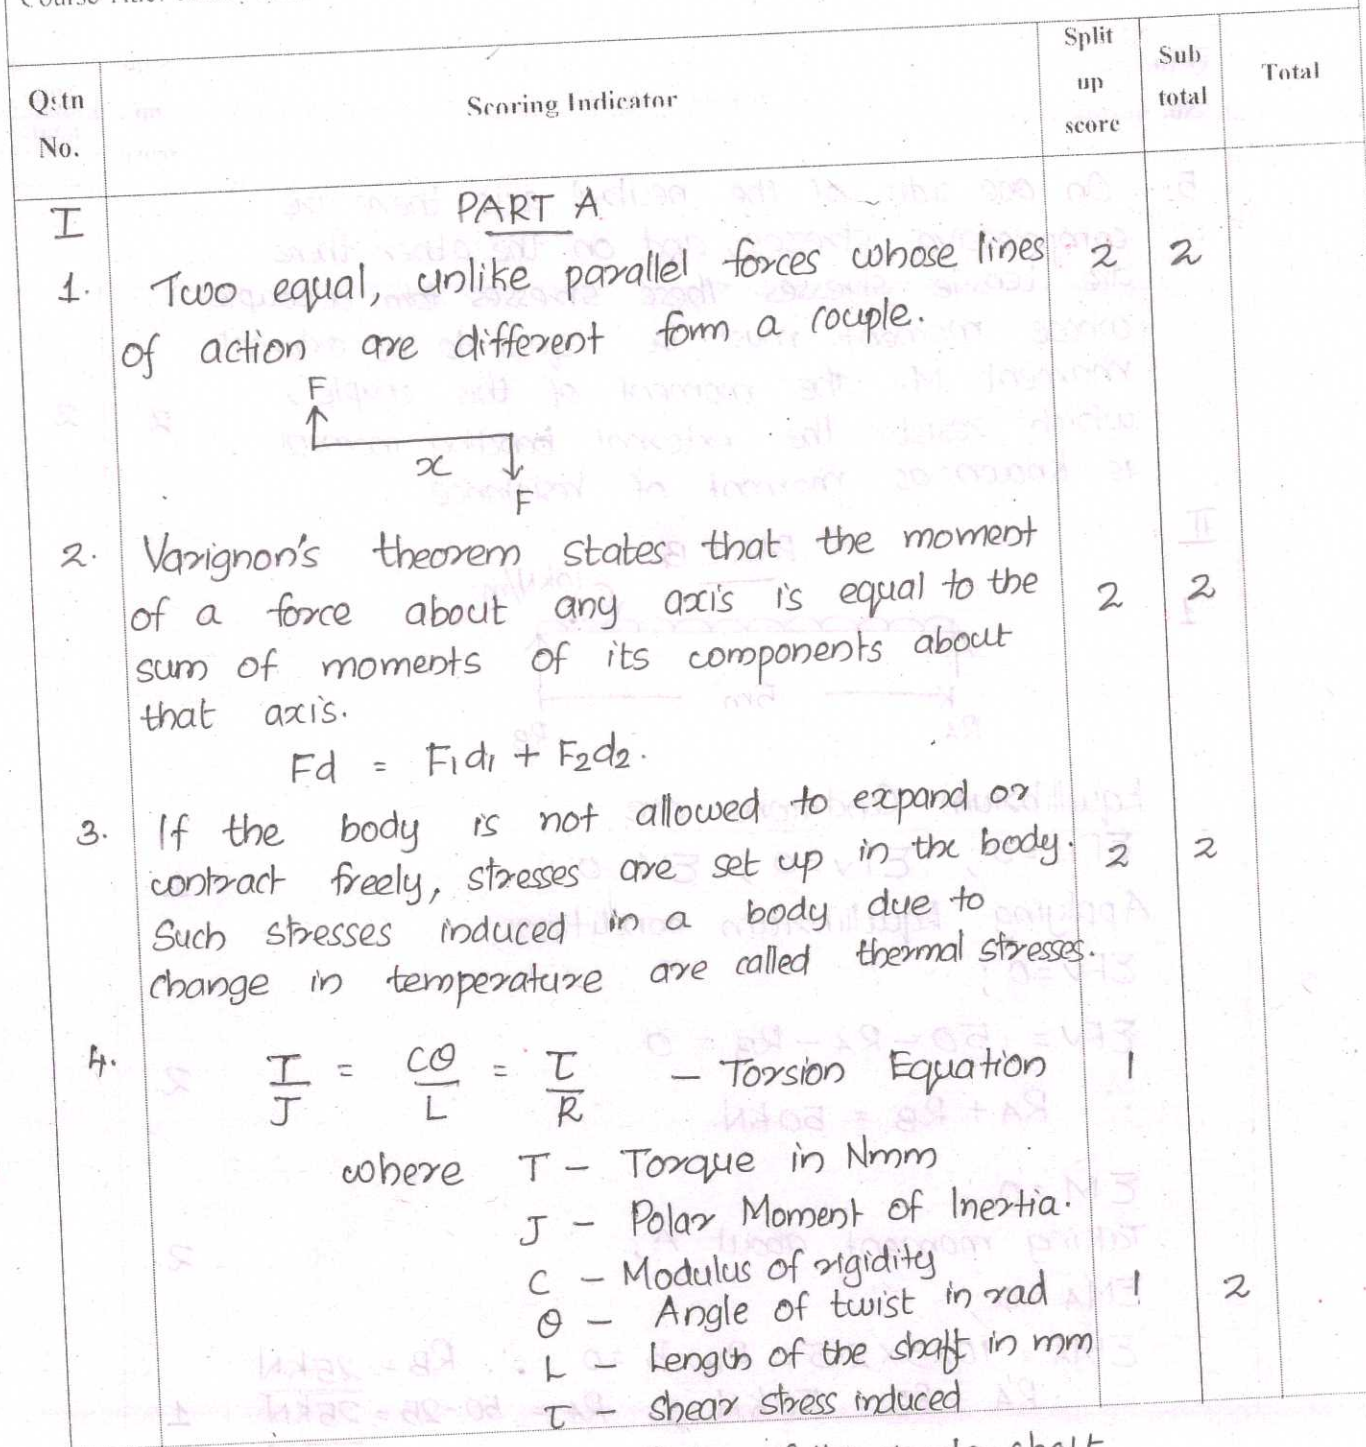 Qstn
No.
Scoring Indicator
Split
up
score
Sub
total
Total
I
PART A
1. Two equal, unlike parallel forces whose lines 2 2
of action are different form a couple.
F
x
F
2. Varignon's theorem states that the moment
of a force about any axis is equal to the 2 2
sum of moments of its components about
that axis.
Fd = F₁d₁ + F₂d₂.
3. If the body is not allowed to expand or
contract freely, stresses are set up in the body. 2 2
Such stresses induced in a body due to
change in temperature are called thermal stresses.
4. T/J = Cθ/L = τ/R – Torsion Equation 1
where T – Torque in Nmm
J – Polar Moment of Inertia.
C – Modulus of rigidity
θ – Angle of twist in rad 1 2
L – Length of the shaft in mm
τ – shear stress induced